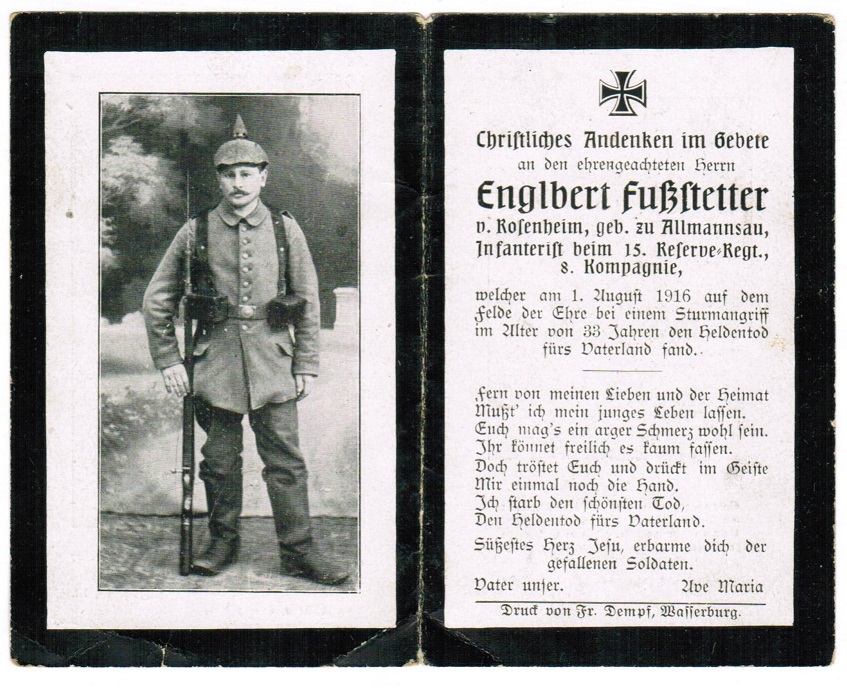 Christliches Andenken im Gebete
an den ehrengeachteten Herrn
Englbert Fußstetter
v. Rosenheim, geb. zu Allmannsau,
Infanterist beim 15. Reserve-Regt.,
8. Kompagnie,
welcher am 1. August 1916 auf dem
Felde der Ehre bei einem Sturmangriff
im Alter von 33 Jahren den Heldentod
fürs Vaterland fand.
Fern von meinen Lieben und der Heimat
Mußt' ich mein junges Leben lassen.
Euch mag's ein arger Schmerz wohl sein.
Ihr könnet freilich es kaum fassen.
Doch tröstet Euch und drückt im Geiste
Mir einmal noch die Hand.
Ich starb den schönsten Tod,
Den Heldentod fürs Vaterland.
Süßestes Herz Jesu, erbarme dich der
gefallenen Soldaten.
Vater unser. Ave Maria
Druck von Fr. Dempf, Wasserburg.